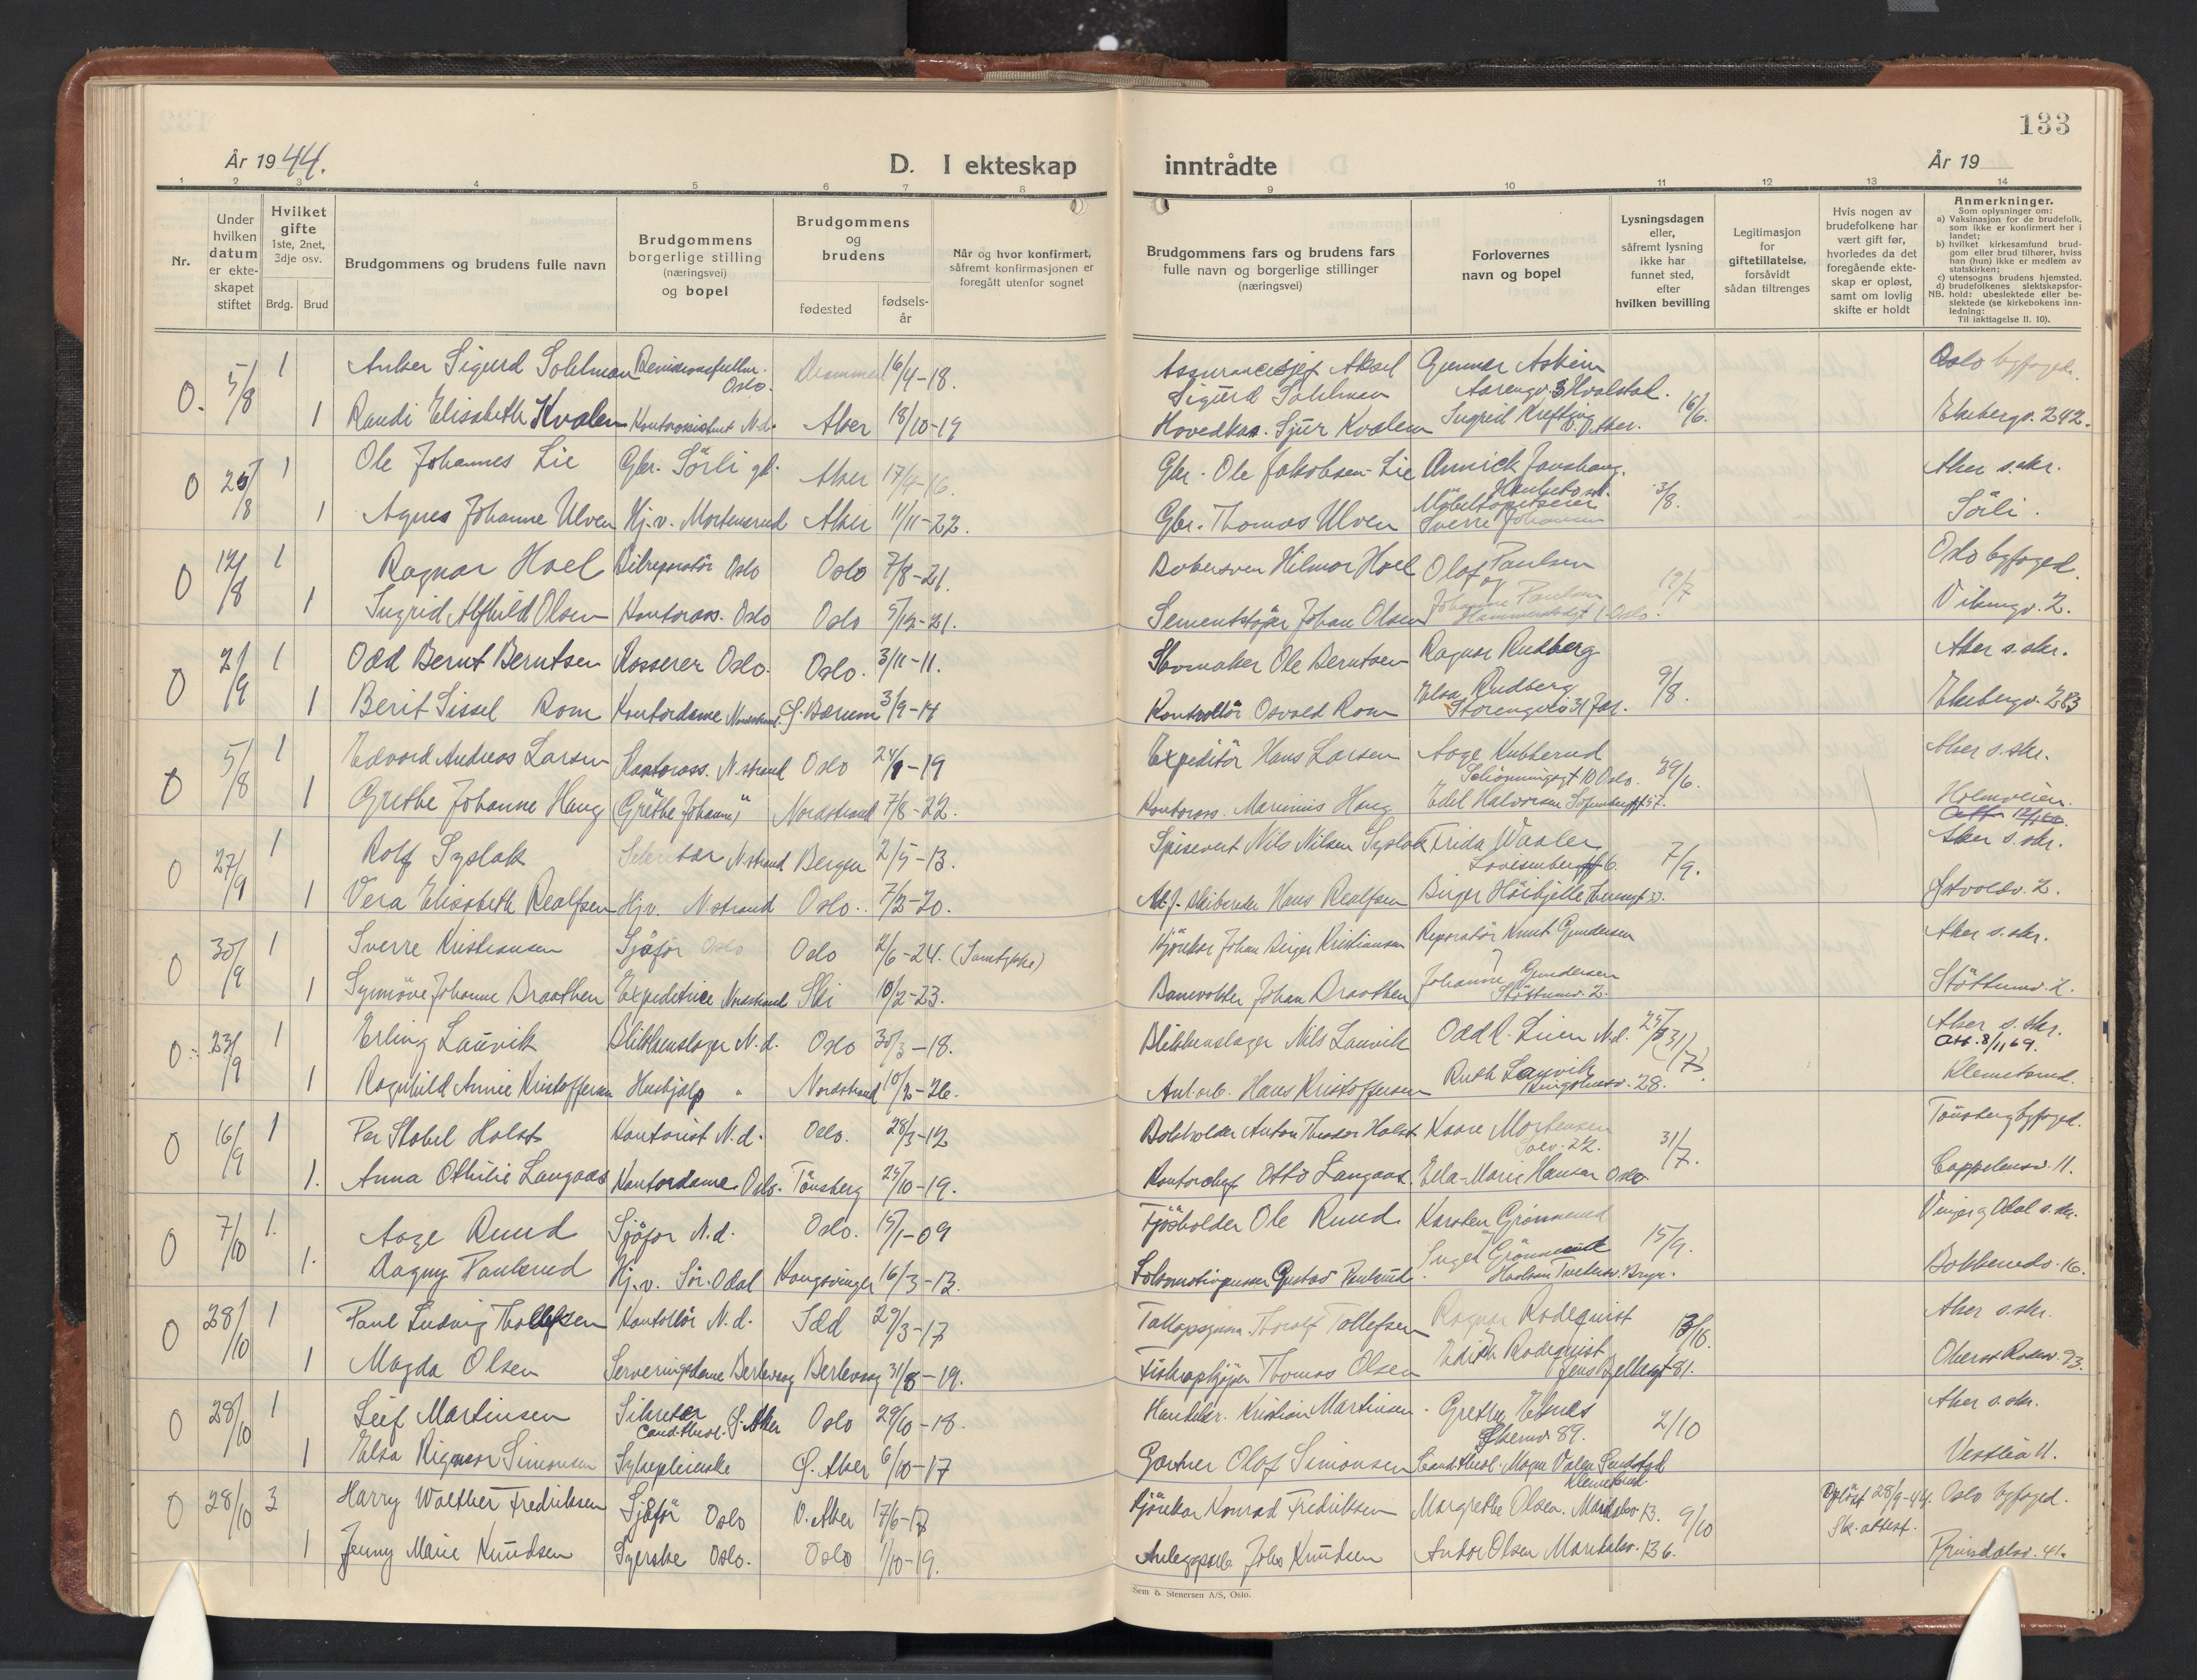 133
År 1944.
D. I ekteskap inntrådte
År 19
1 2 3 4 5 6 7 8 9 10 11 12 13 14
Nr.
Under hvilken datum er ekteskapet stiftet
Hvilket gifte 1ste, 2net, 3dje osv.
Brdg. Brud
Brudgommens og brudens fulle navn
Brudgommens borgerlige stilling (næringsvei) og bopel
Brudgommens og brudens
fødested
fødselsår
Når og hvor konfirmert, såfremt konfirmasjonen er foregått utenfor sognet
Brudgommens fars og brudens fars fulle navn og borgerlige stillinger (næringsvei)
Forlovernes navn og bopel
Lysningsdagen eller, såfremt lysning ikke har funnet sted, efter hvilken bevilling
Legitimasjon for giftetillatelse, forsåvidt sådan tiltrenges
Hvis nogen av brudefolkene har vært gift før, hvorledes da det foregående ekteskap er opløst, samt om lovlig skifte er holdt
Anmerkninger.
Som oplysninger om:
a) Vaksinasjon for de brudefolk, som ikke er konfirmert her i landet;
b) hvilket kirkesamfund brudgom eller brud tilhører, hviss han (hun) ikke er medlem av statskirken;
c) utensogns brudens hjemsted.
d) brudefolkenes slektskapsforhold: ubeslektede eller beslektede (se kirkebokens innledning:
NB.
Til iakttagelse II. 10).
O. 5/8 1 Anker Sigurd Sohlman Revisionsfullm. Oslo. Drammen 16/4-18. Assurancesjef Aksel Sigurd Sohlman Gunnar Askeim Oslo byfoged.
1 Randi Elisabeth Kvalen Kontorassistent N.d. Aker 18/10-19 Sjur Kvalen Ingrid 16/6. Ekebergv. 242.
O 25/8 1 Ole Johannes Lie Gbr. Sörli gd. Aker 17/4-16. Gbr. Ole Jakobsen Lie Aker s.skr.
1 Agnes Johanne Ulven Hj.v. Mortensrud Aker 11/11-22. Gbr. Thomas Ulven Möbeltapetserer Sverre Johansen 3/8. Sörli.
O 12/8 1 Ragnar Hoel Bilreparatör Oslo Oslo 7/8-21. Hilmar Hoel Olaf Paulsen og Oslo byfoged.
1 Ingrid Alfhild Olsen Kontorass. Oslo Oslo 5/12-21. Johan Olsen Johanne Paulsen 12/7 Vikingv. 2.
O 2/9 1 Odd Bernt Berntsen Kasserer Oslo. Oslo. 3/11-11. Skomaker Ole Berntsen Ragnar Rudberg Aker s.skr.
1 Berit Sissel Rom Kontordame Nordstrand. Ø. Bærum 3/9-14 Kontrollör Osvald Rom Elsa Rudberg 9/8. Ekebergv. 283
O 5/8 1 Edvard Andreas Larsen Kontorass. N.strand Oslo 24/9-19 Expeditör Hans Larsen Aage Kubberud Schönningsgt 10 Oslo. 29/6. Aker s.skr.
1 Grethe Johanne Haug (Grethe Johanne) Nordstrand 7/8-22. Kontorass. Marinius Haug Edel Halvorsen Holmveien.
O 27/9 1 Rolf Syslak Sekretær N.strand Bergen 2/5-13. Spisevert Nils Nilsen Syslak Frida Waaler Lovisenberggt 6. 7/9. Aker s.skr.
1 Vera Elisabeth Realfsen Hj.v. N.strand Oslo. 7/2-20. Hans Realfsen Birger
O 30/9 1 Sverre Kristiansen Sjåför Oslo Oslo 2/6-24. (Samtykke) Kjörekar Johan Birger Kristiansen Reparatör Knut Gundersen Aker s.skr.
1 Synnöve Johanne Braathen Expeditrice Nordstrand Ski 10/2-23. Banevokter Johan Braathen Johanne Gundersen Stöttumv. 2. Stöttumv. 2.
O 23/9 1 Erling Lauvik Blikkenslager N.d. Oslo 30/3-18. Blikkenslager Nils Lauvik Odd R. Lien N.d. Aker s.skr. Att. 8/11 69.
1 Ragnhild Annie Kristoffersen Hushjelp " Nordstrand 10/2-26. Anl.arb. Hans Kristoffersen Ruth Lauvik Klemetsrud.
O 16/9 1 Per Stabel Holst Kontorist N.d. Oslo. 28/3-12 Bokholder Anton Theodor Holst Kaare Mortensen 31/7. Tönsberg byfoged.
1. Anna Othilie Langaas Kontordame Oslo. Tönsberg 25/10-19. Kontorchef Otto Langaas. Ella-Marie Hansen Oslo Cappelensv. 11.
O 7/10 1. Aage Ruud Sjåför N.d. Oslo. 15/1-09 Fjösholder Ole Ruud Karsten Grönnerud 15/9. Vinger og Odal s.skr.
1. Dagny Paulsrud Hj.v. Sör-Odal Kongsvinger 16/3-13. Lokomotivpusser Gustav Paulsrud. Inger Grönnerud
O 28/10 1 Paul Ludvig Thollefsen Kontrollör N.d. Idd 29/3-17 Thoralf Tollefsen Ragnar Rodequist Aker s.skr.
1 Magda Olsen Serveringsdame Berlevaag Berlevaag 31/8-19. Fiskeopkjöper Thomas Olsen Edith Rodequist Jens Bjelkesgt 81. Oberst Rodesv. 93.
O 28/10 1 Leif Martinsen Sekretær Cand. theol. Ø. Aker Oslo 29/10-18. Kristian Martinsen. Grethe 2/10 Aker s.skr.
1 Elsa Rigmor Simonsen Sykepleierske Ø. Aker 6/10-17 Gartner Olaf Simonsen Cand. theol. Klemetsrud. Vestlia 11.
O 28/10 3 Harry Walther Fredriksen Sjåför Oslo V. Aker 17/6-17 Kjörekar Konrad Fredriksen Margrethe Olsen. 9/10 Oplöst 28/9-44. Sk. attest. Oslo byfoged.
1 Jenny Marie Knudsen Syerske Oslo. Oslo 1/10-19. Knudsen Andor Olsen Maridalsv. 136. Prinsdalsv. 41.
Sem & Stenersen A/S, Oslo.